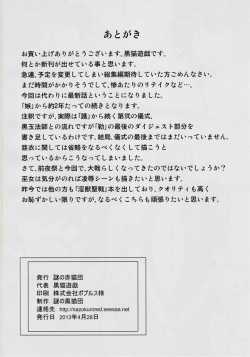 あとがき
お買い上げありがとうございます、黒猫遊戯です。
何とか新刊が出せている事と思います。
急遽、予定を変更してしまい総集編期待していた方ごめんなさい。
まだ時間がかかりそうでして、惨あたりのリテイクなど…、
今回は代わりに最新話ということになりました。
「妖」から約2年たっての続きとなります。
注釈ですが、実際は「踊」から続く第弐の儀式、
黒玉法師との流れですが「勒」の最後のダイジェスト部分を
書き足しているわけです、結局、儀式の最後まではまだいっていません。
並衣に関しては省略をなるべくなくして描こうと
思っているからこうなってしまいました。
さて、前夜祭と今回で、大戦らしくなってきたのではないでしょうか?
巫女は気分がのれば凌辱シーンも描きたいと思います。
昨今では他の方も「淫獣聖戦」本を出しており、クオリティも高く
お恥ずかしい限りですので、なるべくこちらも頑張りたいと思います。
発行 謎の赤猫団
代表 黒猫遊戯
印刷 株式会社ポプルス様
制作 謎の黒猫団
連絡先 http://nazokurored.seesaa.net
発行日 2013年4月28日